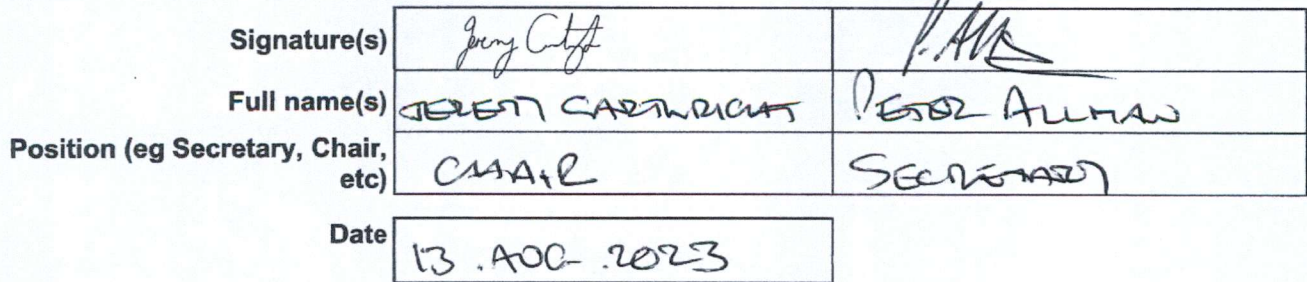 Signature(s) Jeremy Cartwright P. Allman
Full name(s) JEREMY CARTWRIGHT PETER ALLMAN
Position (eg Secretary, Chair, CHAIR SECRETARY
etc)
Date 13.AUG.2023